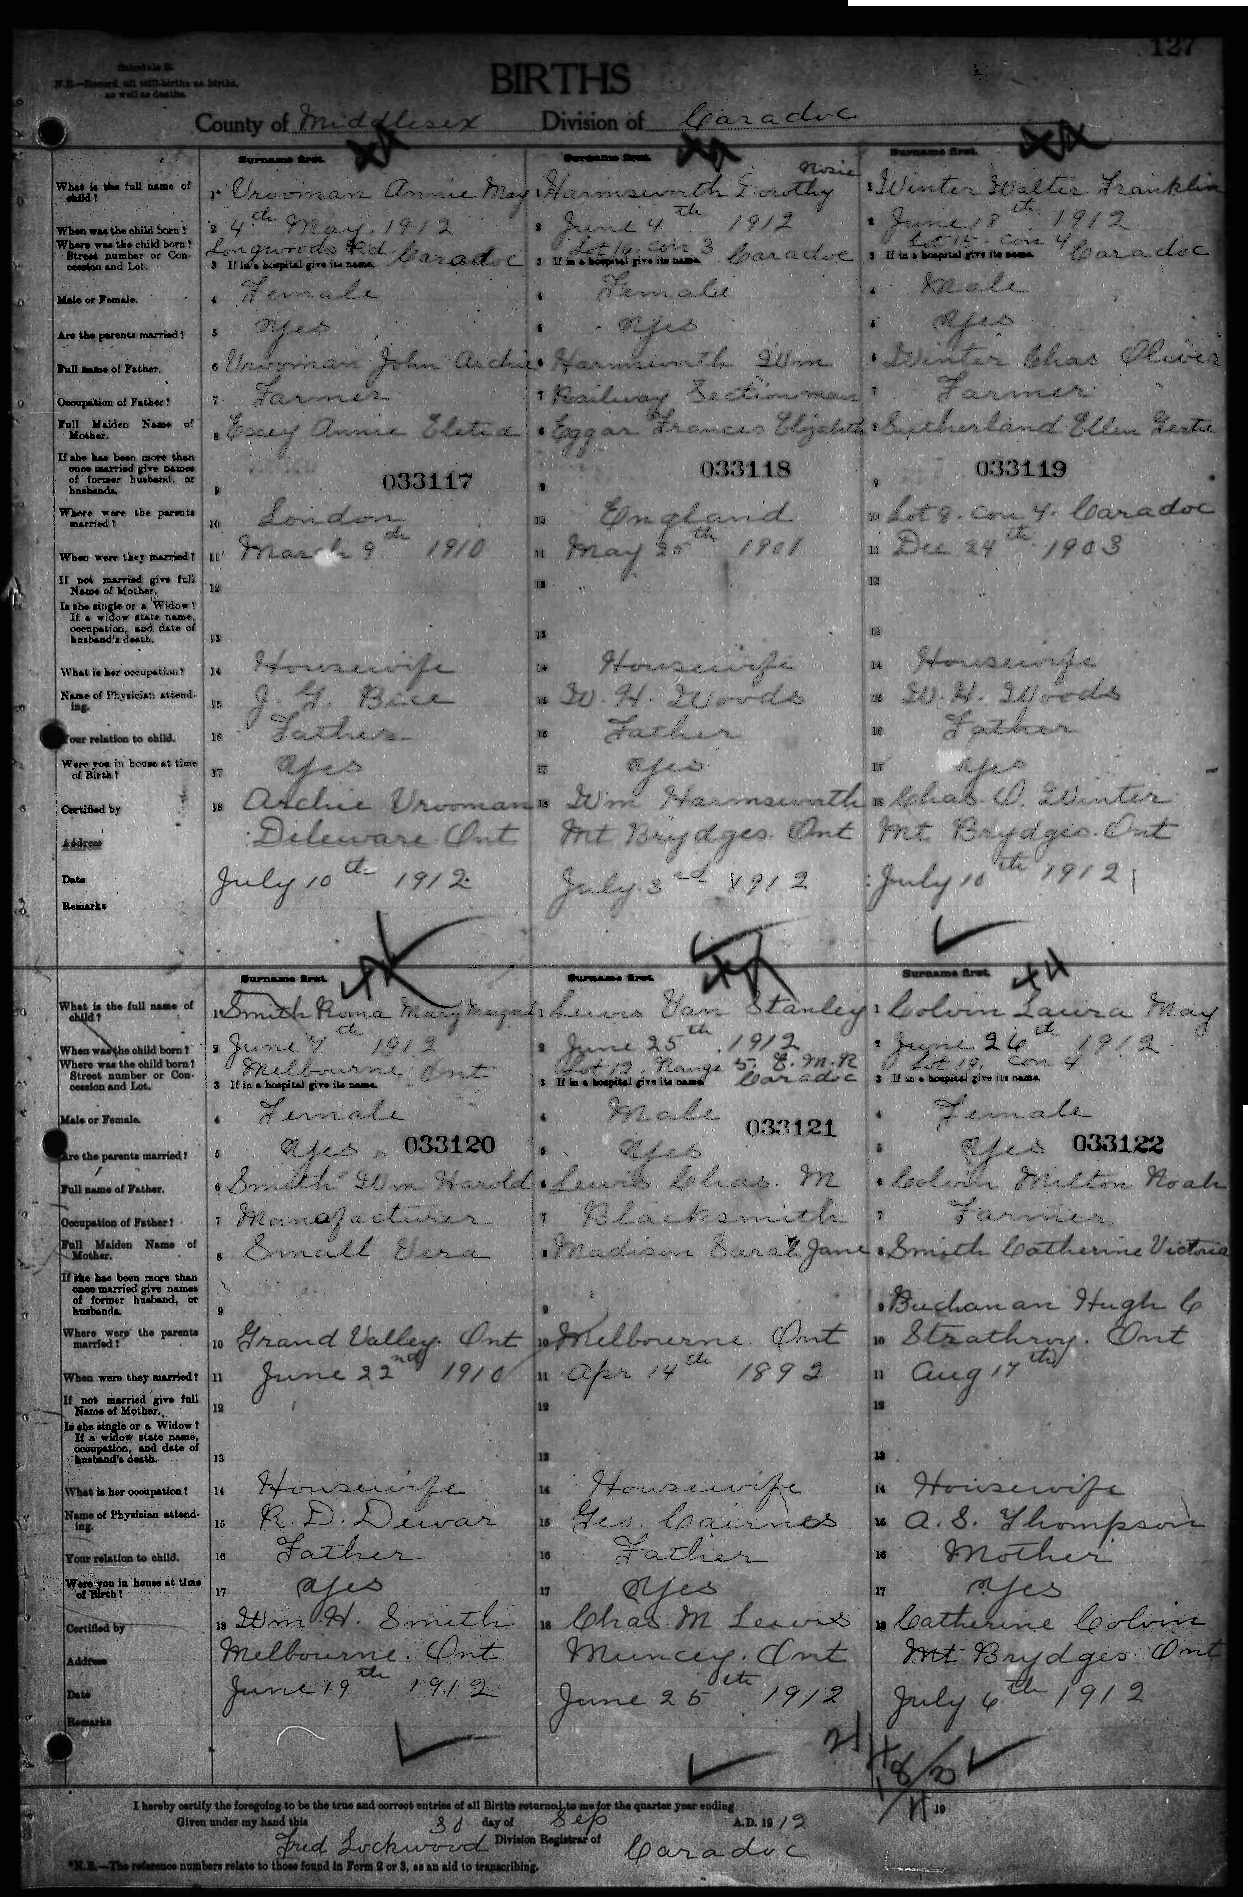 127
Schedule B.
N.B.—Record all still-births as births, as well as deaths.
BIRTHS
County of Middlesex Division of Caradoc
Surname first.
Surname first.
Surname first.
What is the full name of child?
1 Vrooman Annie May
1 Harmsworth Dorothy Rosie
1 Winter Walter Franklin
When was the child born?
2 4th May 1912
2 June 4th 1912
2 June 18th 1912
Where was the child born? Street number or Concession and Lot.
3 If in a hospital give its name. Longwoods Rd Caradoc
3 If in a hospital give its name. Lot 16 con 3 Caradoc
3 If in a hospital give its name. Lot 15 con 4 Caradoc
Male or Female.
4 Female
4 Female
4 Male
Are the parents married?
5 Yes
5 Yes
5 Yes
Full name of Father.
6 Vrooman John Archie
6 Harmsworth Wm
6 Winter Chas Oliver
Occupation of Father?
7 Farmer
7 Railway Sectionman
7 Farmer
Full Maiden Name of Mother.
8 Annie
8 Eggar Frances Elizabeth
8 Sutherland Ellen Gertie
If she has been more than once married give names of former husband, or husbands.
9 033117
9 033118
9 033119
Where were the parents married?
10 London
10 England
10 Lot 9 con 4 Caradoc
When were they married?
11 March 9th 1910
11 May 25th 1901
11 Dec 24th 1903
If not married give full Name of Mother.
12
12
12
Is she single or a Widow? If a widow state name, occupation, and date of husband's death.
13
13
13
What is her occupation?
14 Housewife
14 Housewife
14 Housewife
Name of Physician attending.
15 J. G. Bice
15 W. H. Woods
15 W. H. Woods
Your relation to child.
16 Father
16 Father
16 Father
Were you in house at time of Birth?
17 Yes
17 Yes
17 Yes
Certified by
18 Archie Vrooman
18 Wm Harmsworth
18 Chas. O. Winter
Address
Deleware Ont
Mt Brydges Ont
Mt Brydges Ont
Date
July 10th 1912
July 3rd 1912
July 10th 1912
Remarks
Surname first.
Surname first.
Surname first.
What is the full name of child?
1 Smith Roma Mary
1 Lewis Van Stanley
1 Colvin Laura May
When was the child born?
2 June 7th 1912
2 June 25th 1912
2 June 26th 1912
Where was the child born? Street number or Concession and Lot.
3 If in a hospital give its name. Melbourne Ont
3 If in a hospital give its name. Lot 12 Range 5 Caradoc
3 If in a hospital give its name. Lot 19 con 4
Male or Female.
4 Female
4 Male
4 Female
Are the parents married?
5 Yes 033120
5 Yes 033121
5 Yes 033122
Full name of Father.
6 Smith Wm Harold
6 Lewis Chas. M
6 Colvin Milton Noah
Occupation of Father?
7 Manofacturer
7 Blacksmith
7 Farmer
Full Maiden Name of Mother.
8 Small Vera
8 Madison Sarah Jane
8 Smith Catherine Victoria
If she has been more than once married give names of former husband, or husbands.
9
9
9 Buchanan Hugh C
Where were the parents married?
10 Grand Valley Ont
10 Melbourne Ont
10 Strathroy. Ont
When were they married?
11 June 22nd 1910
11 Apr 14th 1892
11 Aug 17th
If not married give full Name of Mother.
12
12
12
Is she single or a Widow? If a widow state name, occupation, and date of husband's death.
13
13
13
What is her occupation?
14 Housewife
14 Housewife
14 Housewife
Name of Physician attending.
15 R. D. Dewar
15 Geo. Cairnes
15 A. S. Thompson
Your relation to child.
16 Father
16 Father
16 Mother
Were you in house at time of Birth?
17 Yes
17 Yes
17 Yes
Certified by
18 Wm H. Smith
18 Chas M Lewis
18 Catherine Colvin
Address
Melbourne. Ont
Muncey. Ont
Mt Brydges Ont
Date
June 19th 1912
June 25th 1912
July 6th 1912
Remarks
I hereby certify the foregoing to be the true and correct entries of all Births returned to me for the quarter year ending 19
Given under my hand this 30 day of Sep A.D. 1912
Fred Lockwood Division Registrar of Caradoc
*N.B.—The reference numbers relate to those found in Form 2 or 3, as an aid to transcribing.